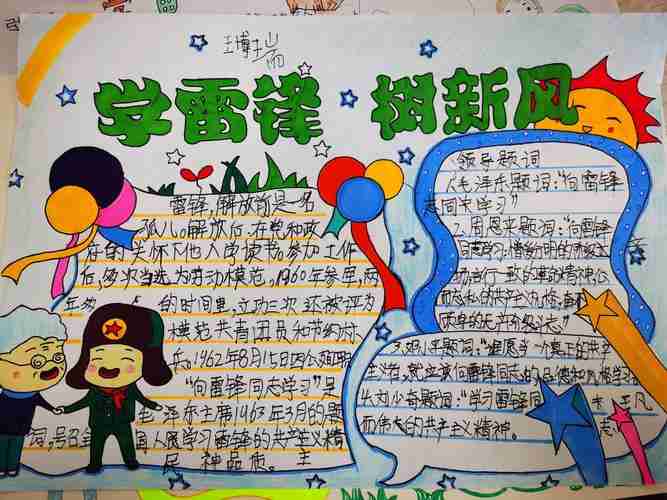 王博
学雷锋 树新风
雷锋，解放前是一名
孤儿。解放后，在党和政
的关怀下他入学读书，参加工作
后，多次当选为劳动模范，1960年参军，两
年 的时间里，立功三次，还被评为
模范共青团员和节约
兵。1962年8月15日因公
"向雷锋同志学习"是
毛泽东主席1963年3月的题
词，号召全国人民学习雷锋的共产主义精
神品质。
领导题词
1.毛泽东题词："向雷锋
同志学习"
2.周恩来题词："向雷锋
学习：憎爱分明的
场，言行一致的 精神，公
而忘私的共产主义风格，奋
的无产阶级 志"
题词："谁愿当一个真正的共产
主义者，就应该向雷锋同志的品德和风格学习"
4.刘少奇题词："学习雷锋同志平凡
而伟大的共产主义精神。